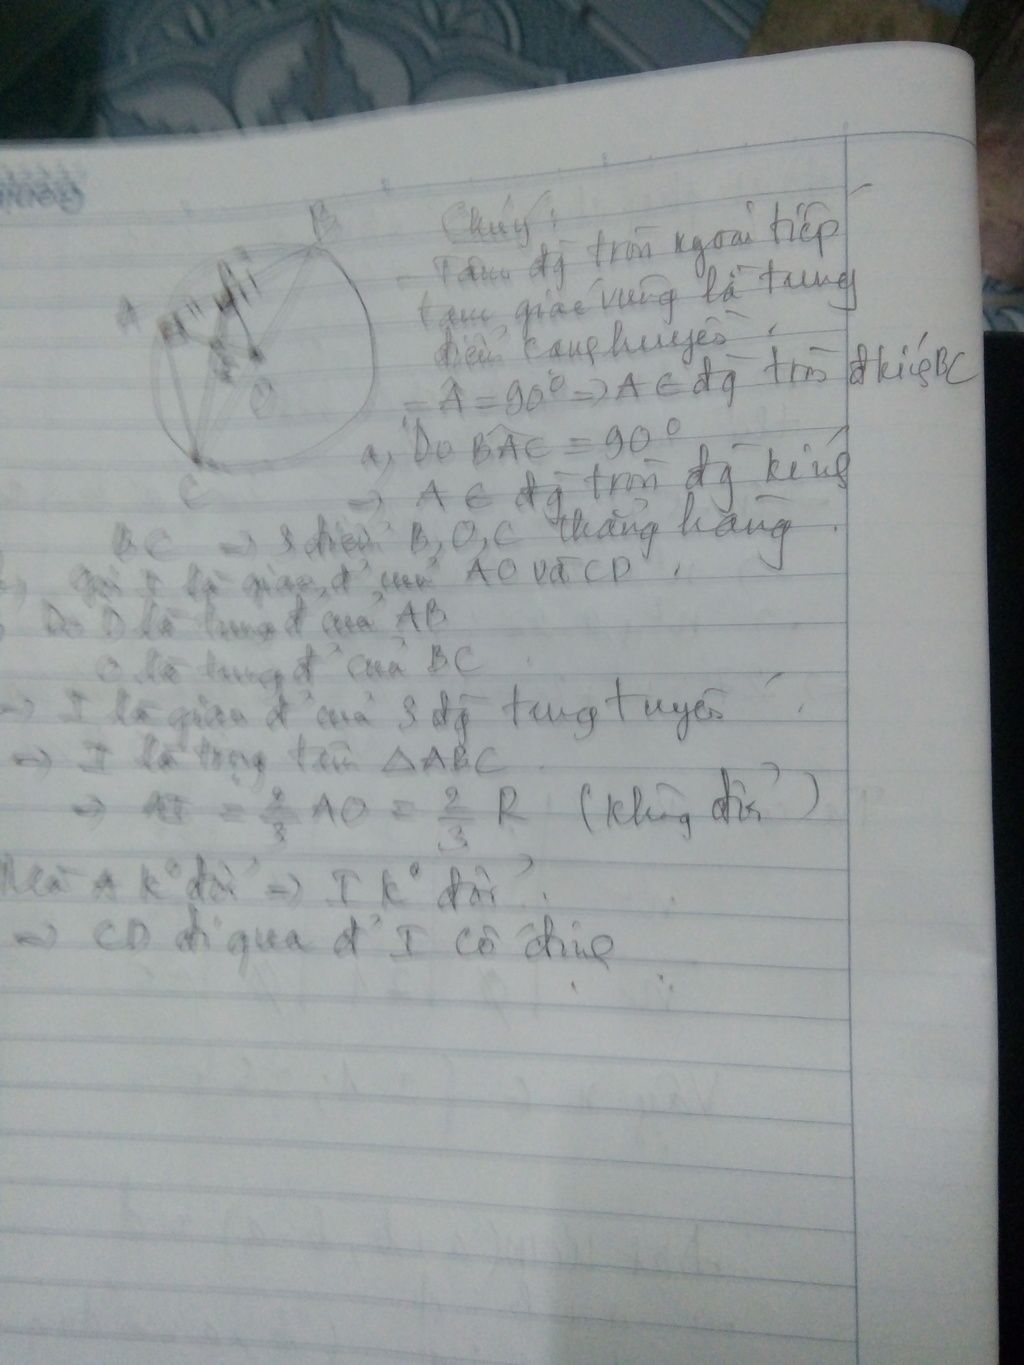 B
Chú ý:
- Tâm đg tròn ngoại tiếp
tam giác vuông là trung
A
điểm cạng huyền
O
- Â = 90° => A ∈ đg tròn đkíng BC
a, Do BAC = 90°
C
=> A ∈ đg tròn đg kíng
BC => 3 điểm B, O, C thẳng hàng.
Gọi I là giao đ' của AO và CD.
Do D là trung đ' của AB
O là trung đ' của BC
=> I là giao đ' của 3 đg trung tuyến
=> I là trọng tâm △ABC
=> AI = 2/3 AO = 2/3 R (không đổi)
Mà A k° đổi => I k° đổi.
=> CD đi qua đ' I cố định